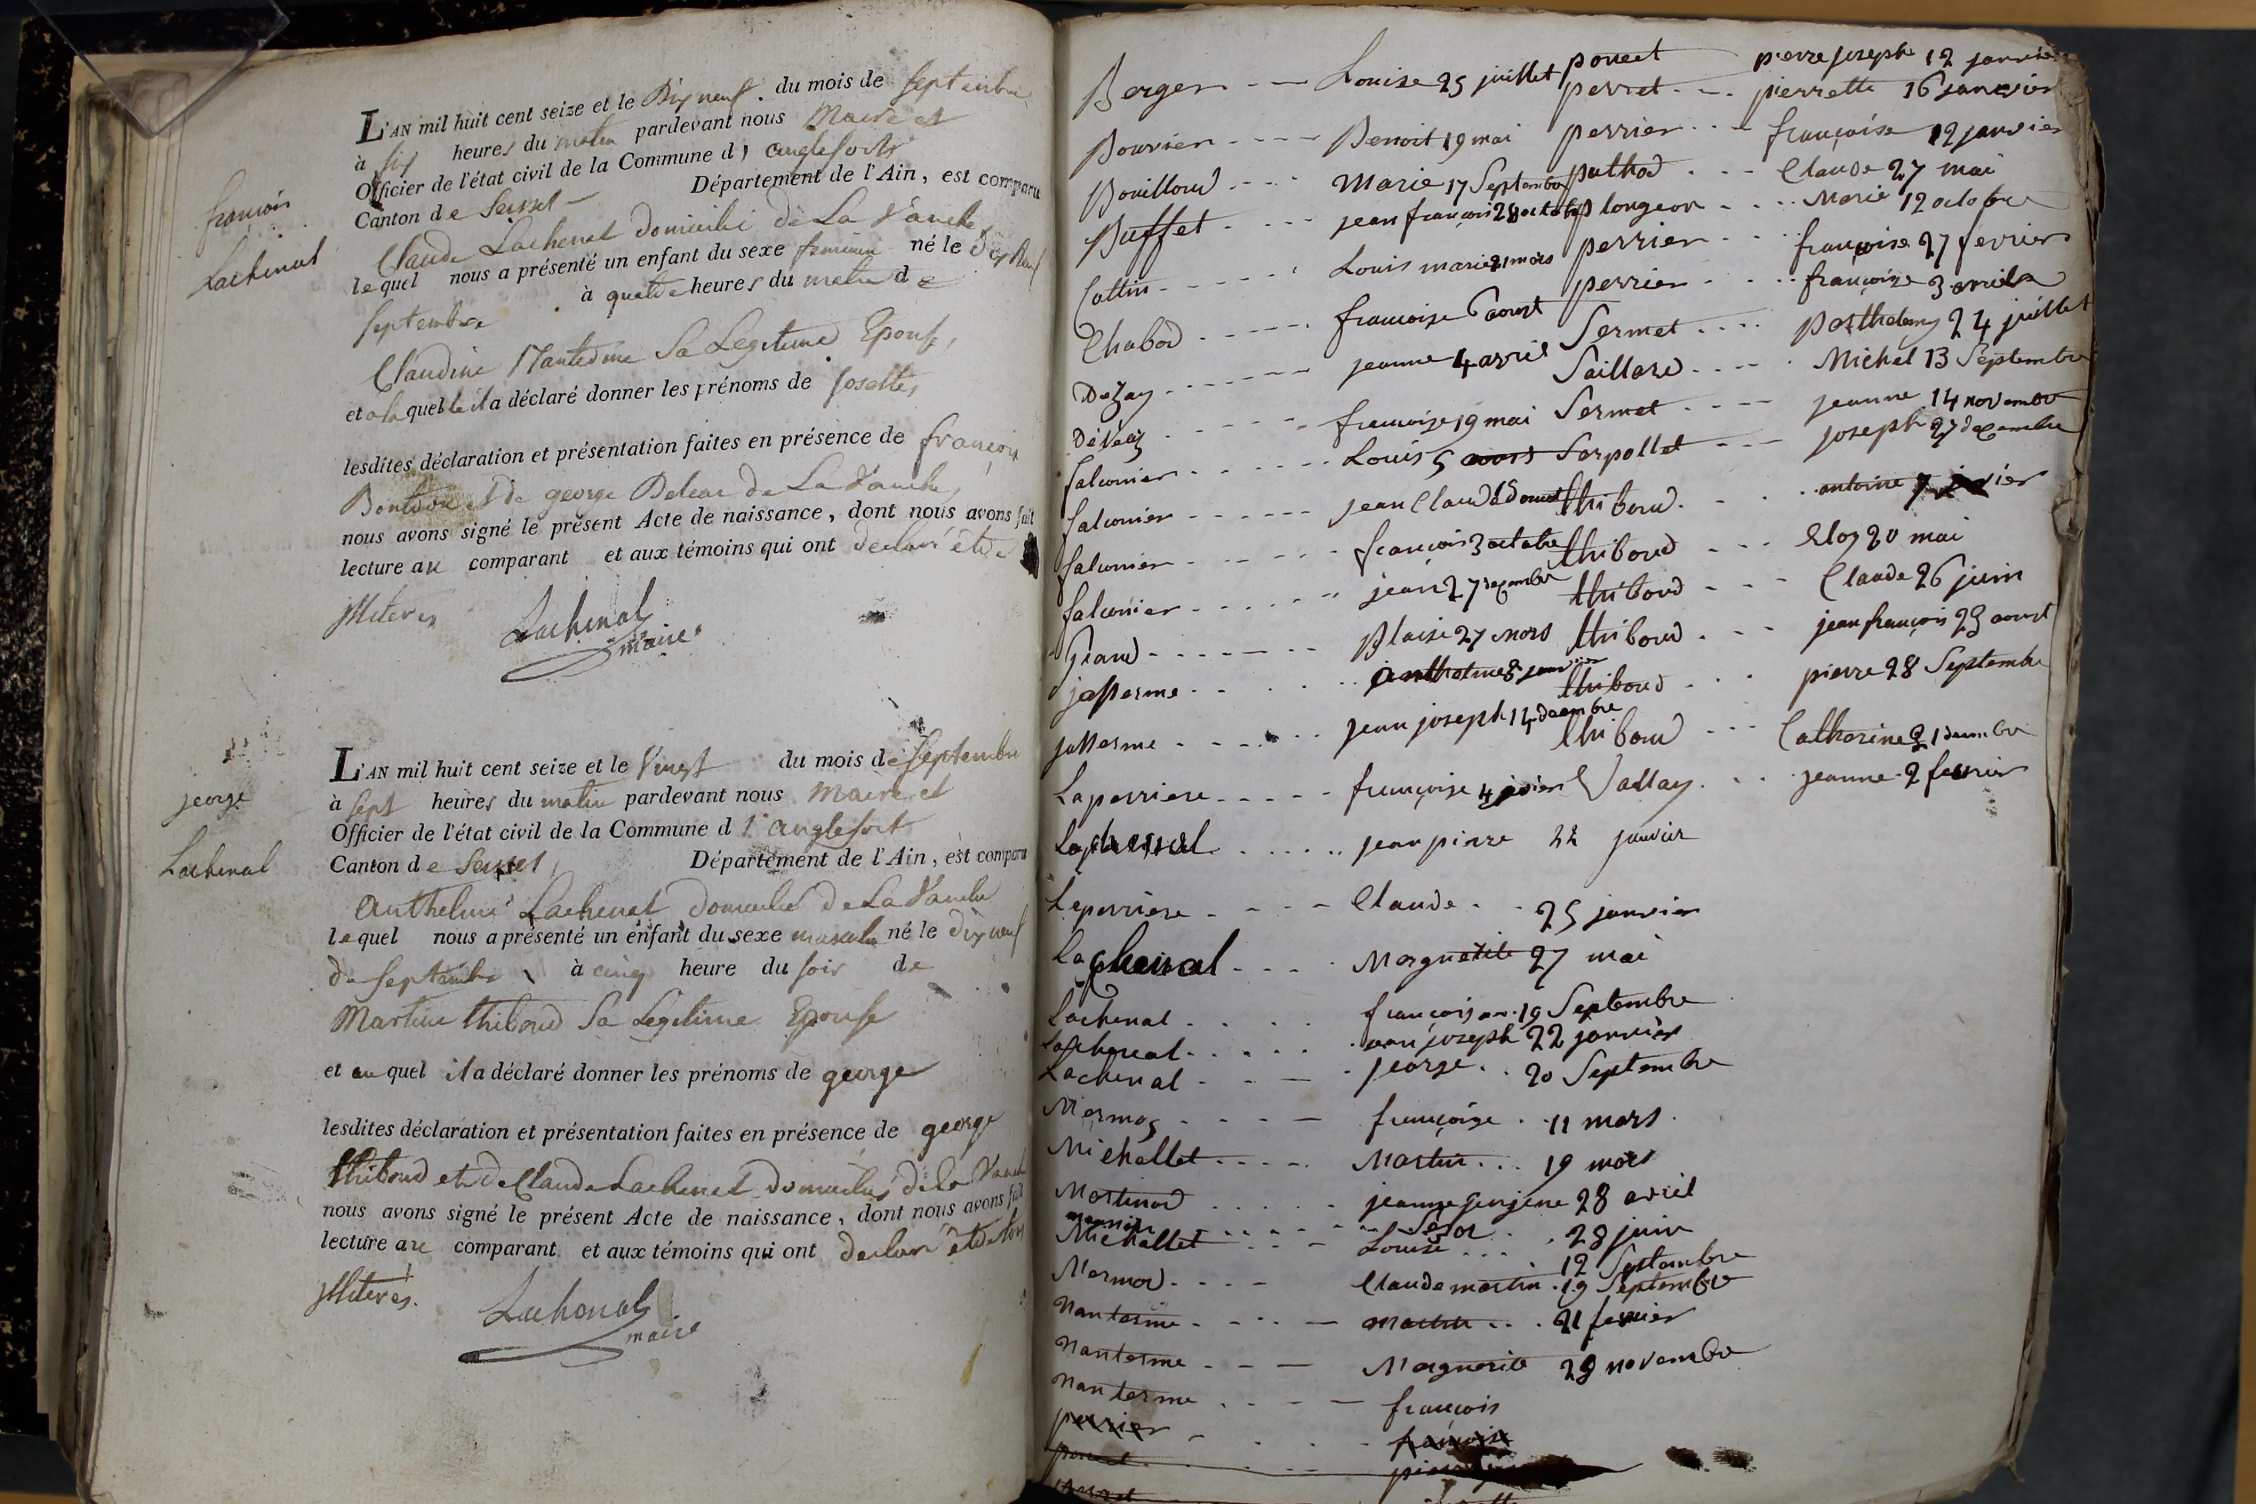 L'AN mil huit cent seize et le Dix neuf du mois de septembre
à six heures du matin pardevant nous Maire et
Officier de l'état civil de la Commune d' anglefort
Canton de Seissel Département de l'Ain, est comparu
françois
Lachenal
Claude Lachenal domicilié de La Vanche
lequel nous a présenté un enfant du sexe feminin né le Dix neuf
septembre à quatre heures du matin de
Claudine Nanterme Sa Legitime Epouse,
et a laquelle il a déclaré donner les prénoms de
lesdites déclaration et présentation faites en présence de françois
de george de La Vanche
nous avons signé le présent Acte de naissance, dont nous avons fait
lecture au comparant et aux témoins qui ont déclaré être
illiteres
Lachenal
maire
L'AN mil huit cent seize et le Vingt du mois de Septembre
george
à sept heures du matin pardevant nous Maire et
Officier de l'état civil de la Commune d' anglefort
Lachenal
Canton de Seissel, Département de l'Ain, est comparu
anthelme Lachenal domicilié de La Vanche
lequel nous a présenté un enfant du sexe masculin né le dix neuf
de septembre à cinq heure du soir de
Martine thiboud Sa Legitime Epouse
et auquel il a déclaré donner les prénoms de george
lesdites déclaration et présentation faites en présence de george
thiboud et de Claude Lachenal domiciliés de la Vanche
nous avons signé le présent Acte de naissance, dont nous avons fait
lecture au comparant et aux témoins qui ont déclaré être tous
illiteres.
Lachenal
maire
Berger - - Louise 25 juillet
Bouvier - - - Benoit 19 mai
Bouilloud - - - Marie 17 Septembre
Buffet - - - jean françois 28 octobre
Cottin - - - Louis marie 21 mars
Chabod - - - françoise 6 aoust
Dezay - - - jeanne 4 avril
- - - françoise 19 mai
falconier - - - Louis 5
falconier - - - jean Claude
falconier - - - françois 3 octobre
falconier - - - jean 27 decembre
Grand - - - Blaise 27 mars
jasserme - - - janvier
jasserme - - - jean joseph 14 decembre
Laperriere - - - françoise 4
Lachenal - - - jean pierre 22 janvier
Leperriere - - - Claude - - 25 janvier
Lachenal - - - Marguerite 27 mai
Lachenal - - - françois 19 Septembre
Lachenal - - - joseph 22 janvier
Lachenal - - - george - - 20 Septembre
Mermoz - - - françoise - 11 mars
Michallet - - - Martin - - 19 mars
Martinod - - - jeanne 28 avril
28 juin
Michallet - - - Louise - - 12 Septembre
Mermod - - - Claude martin - 19 Septembre
Nanterme - - - martin - - 21 fevrier
Nanterme - - - Marguerite 28 novembre
Nanterme - - - françois
perrier - - - françoise
poncet
perret
poncet pierre joseph 12 janvier
perret - - pierrette 16 janvier
perrier - - - françoise 12 janvier
puthod - - - Claude 27 mai
plongeon - - - Marie 12 octobre
perrier - - - françoise 27 fevrier
perrier - - - françoise 3 avril
Sermet - - - 24 juillet
Saillard - - - Michel 13 Septembre
Sermet - - - jeanne 14 novembre
Serpollet - - - joseph 27 decembre
thiboud - - - antoine 7
thiboud - - - Eloy 20 mai
thiboud - - - Claude 26 juin
thiboud - - - jean françois 23 aoust
thiboud - - - pierre 28 Septembre
thiboud - - - Catherine 21 decembre
Vallay - - - jeanne 2 fevrier